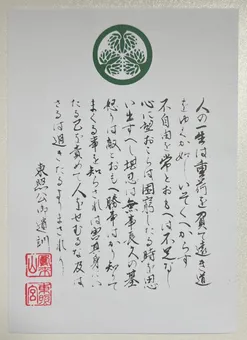 人の一生は重荷を負て遠き道
をゆくか如しいそくへからす
不自由を常とおもへは不足なし
心に望おこらは困窮したる時を思
ひ出すへし堪忍は無事長久の基
怒りは敵とおもへ勝事はかり知りて
まくる事を知らされは害其身にい
たる己を責めて人をせむるな及は
さるは過きたるよりまされり
東照公御遺訓